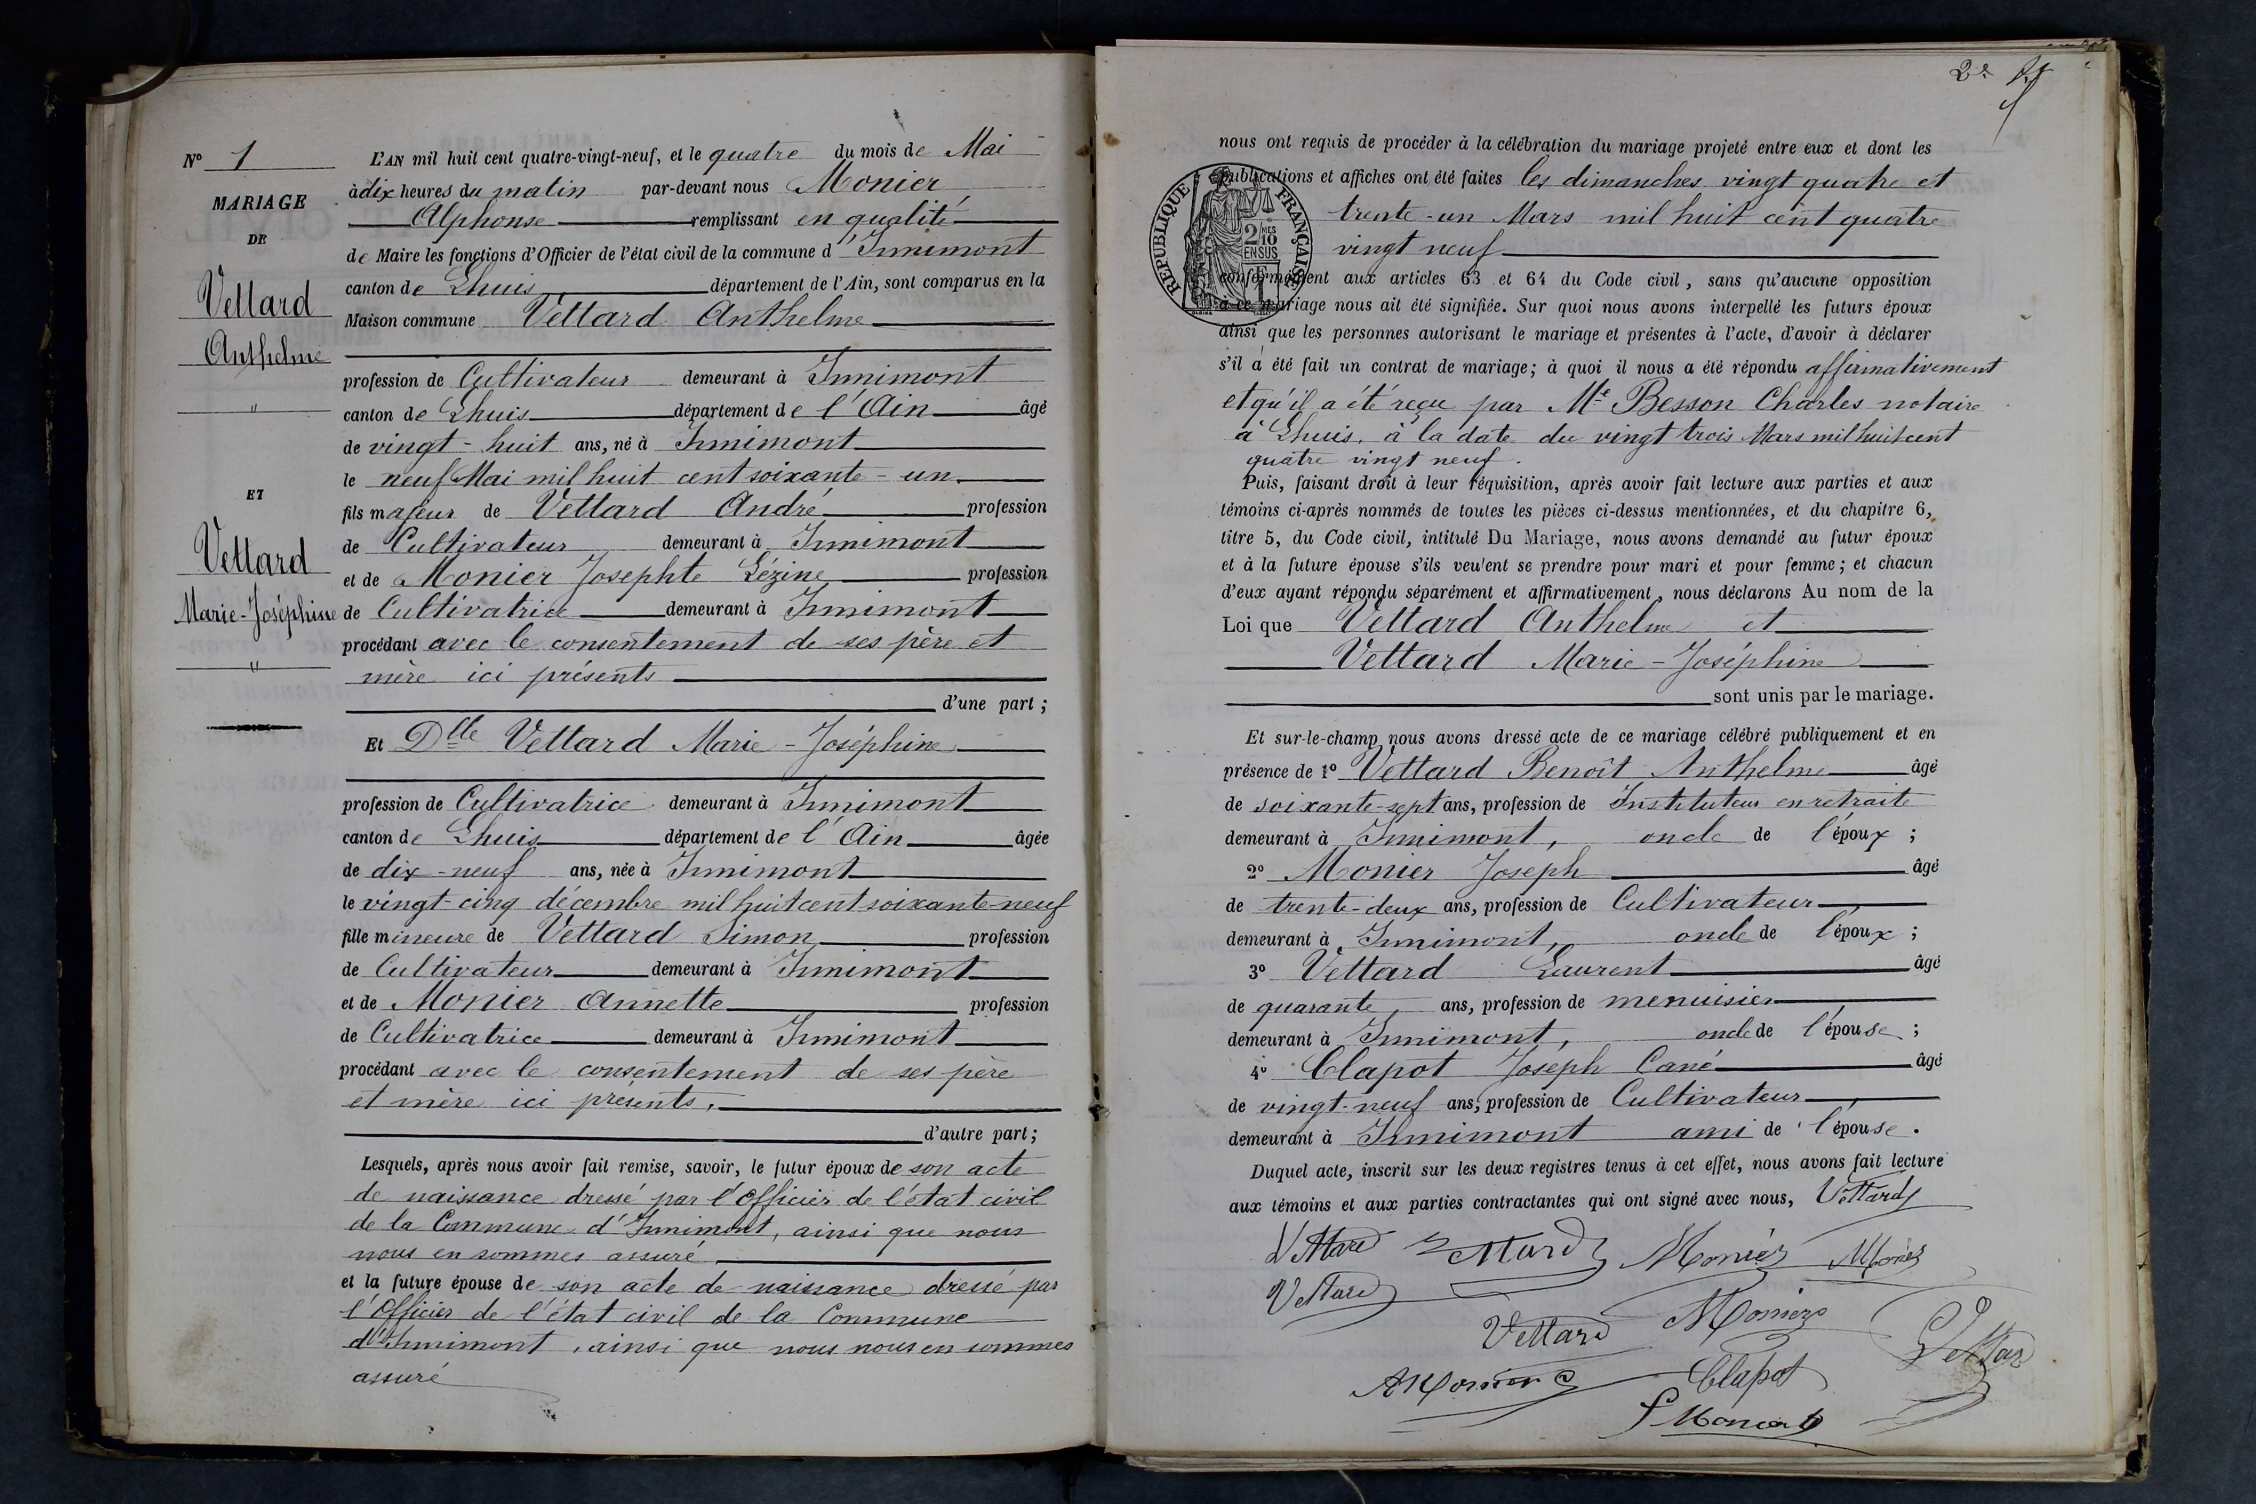 N° 1
MARIAGE
DE
Vettard
Anthelme
"
ET
Vettard
Marie-Joséphine
"
L'AN mil huit cent quatre-vingt-neuf, et le quatre du mois de Mai
à dix heures du matin par-devant nous Monier
Alphonse remplissant en qualité
de Maire les fonctions d'Officier de l'état civil de la commune d'Innimont
canton de Lhuis département de l'Ain, sont comparus en la
Maison commune Vettard Anthelme
profession de Cultivateur demeurant à Innimont
canton de Lhuis département de l'Ain âgé
de vingt-huit ans, né à Innimont
le neuf Mai mil huit cent soixante-un
fils majeur de Vettard André profession
de Cultivateur demeurant à Innimont
et de Monier Josephte Lézine profession
de Cultivatrice demeurant à Innimont
procédant avec le consentement de ses père et
mère ici présents
d'une part ;
Et Dlle Vettard Marie-Joséphine
profession de Cultivatrice demeurant à Innimont
canton de Lhuis département de l'Ain âgée
de dix-neuf ans, née à Innimont
le vingt-cinq décembre mil huit cent soixante-neuf
fille mineure de Vettard Simon profession
de Cultivateur demeurant à Innimont
et de Monier Annette profession
de Cultivatrice demeurant à Innimont
procédant avec le consentement de ses père
et mère ici présents.
d'autre part ;
Lesquels, après nous avoir fait remise, savoir, le futur époux de son acte
de naissance dressé par l'Officier de l'état civil
de la Commune d'Innimont, ainsi que nous
nous en sommes assuré
et la future épouse de son acte de naissance dressé par
l'Officier de l'état civil de la Commune
d'Innimont, ainsi que nous nous en sommes
assuré
2e
nous ont requis de procéder à la célébration du mariage projeté entre eux et dont les
publications et affiches ont été faites les dimanches vingt quatre et
trente-un Mars mil huit cent quatre
vingt neuf
REPUBLIQUE FRANÇAISE
2/10 MES
EN SUS
conformément aux articles 63 et 64 du Code civil, sans qu'aucune opposition
à ce mariage nous ait été signifiée. Sur quoi nous avons interpellé les futurs époux
ainsi que les personnes autorisant le mariage et présentes à l'acte, d'avoir à déclarer
s'il a été fait un contrat de mariage ; à quoi il nous a été répondu affirmativement
et qu'il a été reçu par Me Besson Charles notaire
à Lhuis, à la date du vingt trois Mars mil huit cent
quatre vingt neuf.
Puis, faisant droit à leur réquisition, après avoir fait lecture aux parties et aux
témoins ci-après nommés de toutes les pièces ci-dessus mentionnées, et du chapitre 6,
titre 5, du Code civil, intitulé Du Mariage, nous avons demandé au futur époux
et à la future épouse s'ils veulent se prendre pour mari et pour femme ; et chacun
d'eux ayant répondu séparément et affirmativement, nous déclarons Au nom de la
Loi que Vettard Anthelme et
Vettard Marie-Joséphine
sont unis par le mariage.
Et sur-le-champ nous avons dressé acte de ce mariage célébré publiquement et en
présence de 1° Vettard Benoît Anthelme âgé
de soixante-sept ans, profession de Instituteur en retraite
demeurant à Innimont, oncle de l'époux ;
2° Monier Joseph âgé
de trente-deux ans, profession de Cultivateur
demeurant à Innimont, oncle de l'époux ;
3° Vettard Laurent âgé
de quarante ans, profession de menuisier
demeurant à Innimont, oncle de l'épouse ;
4° Clapot Joseph Cané âgé
de vingt-neuf ans, profession de Cultivateur
demeurant à Innimont ami de l'épouse.
Duquel acte, inscrit sur les deux registres tenus à cet effet, nous avons fait lecture
aux témoins et aux parties contractantes qui ont signé avec nous, Vettard
Vettard Vettard Monier Monier
Vettard
Vettard Monier Vettard
A Monier Clapot
Monier